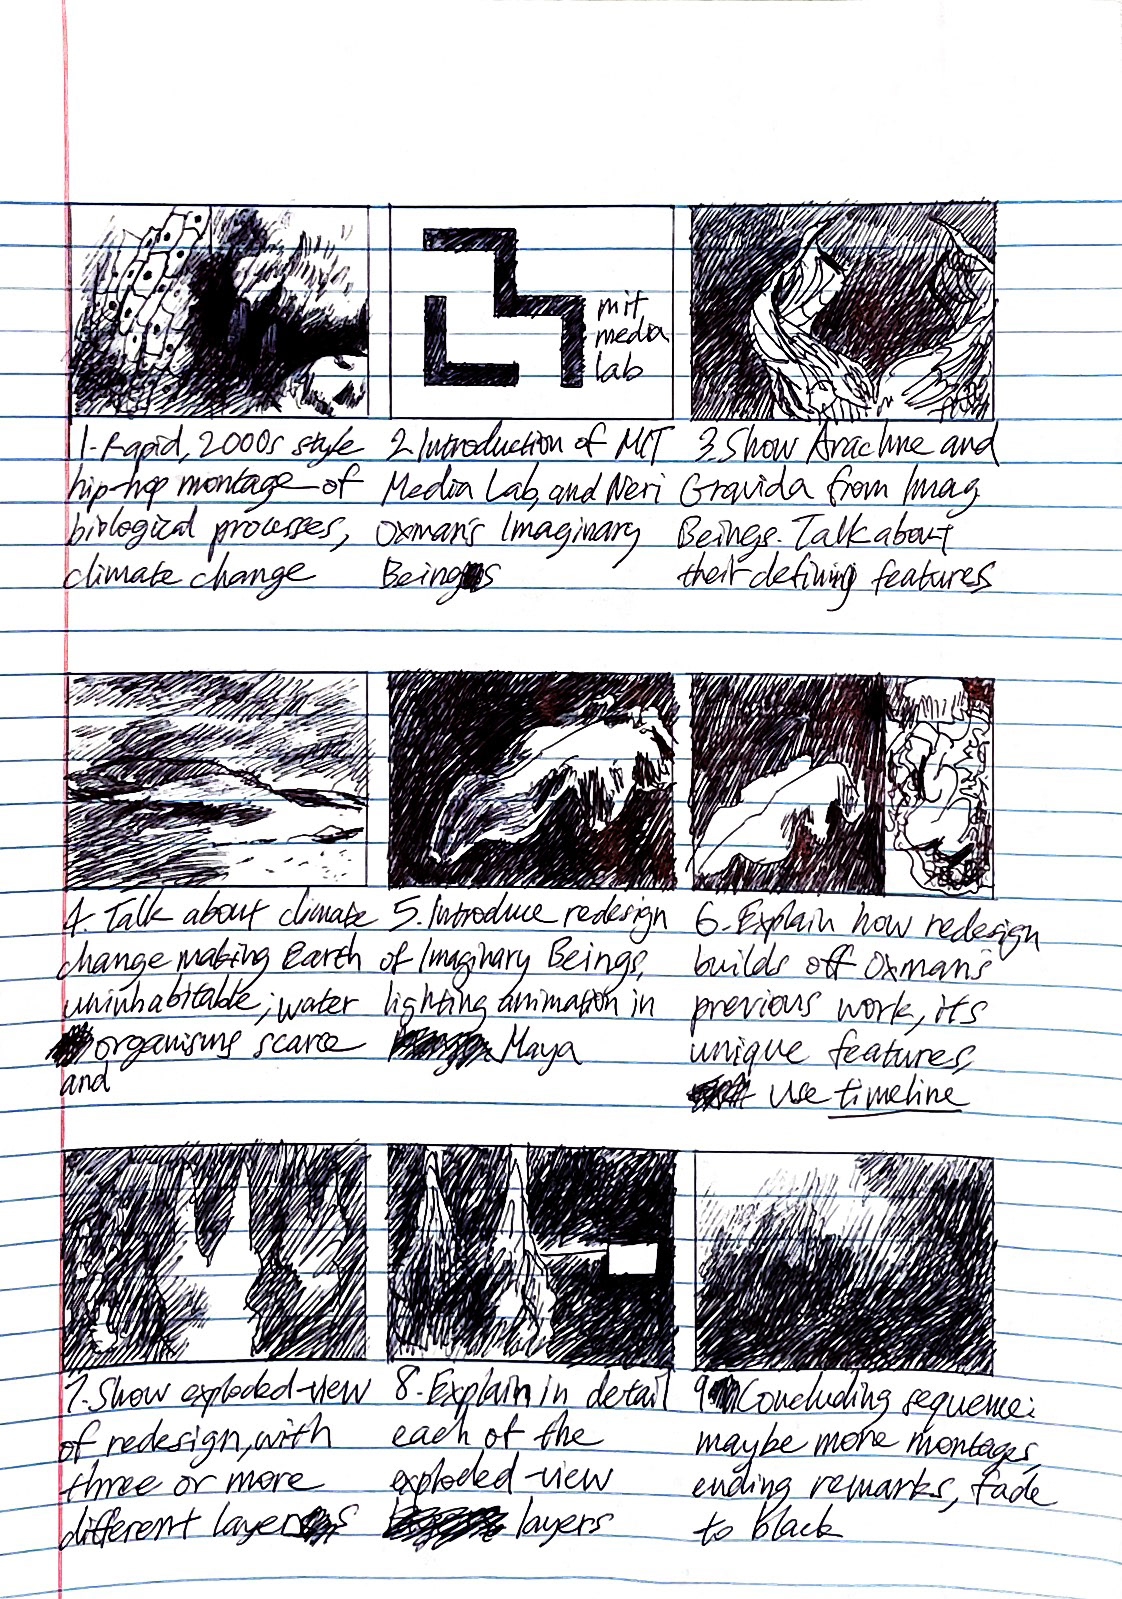 mit
media
lab
1. Rapid, 2000s style
hip-hop montage of
biological processes,
climate change
2. Introduction of MIT
Media Lab, and Neri
Oxman's Imaginary
Beings
3. Show Arachne and
Gravida from Imag
Beings. Talk about
their defining features
4. Talk about climate
change making Earth
uninhabitable; water
organisms scarce
and
5. Introduce redesign
of Imaginary Beings,
lighting animation in
Maya
6. Explain how redesign
builds off Oxman's
previous work, its
unique features,
Use timeline
7. Show exploded-view
of redesign, with
three or more
different layers
8. Explain in detail
each of the
exploded-view
layers
9. Concluding sequence:
maybe more montages,
ending remarks, fade
to black